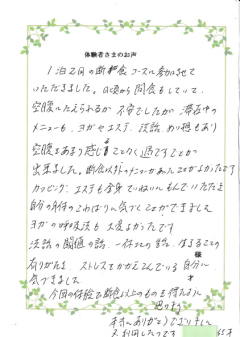 体験者さまのお声
1泊2日の断食コースに参加させて
いただきました。日頃から間食もしていて、
空腹にたえられるか不安でしたが 滞在中の
メニューも、ヨガやエステ、法話、お風呂もあり
空腹をあまり感じることなく過ごすことが
出来ました。断食以外のメニューがあったのがよかったです
カッピング、エステも全身ていねいにもんでいただき
自分の身体のこわばりに気づくことができました
ヨガの呼吸法も大変よかったです
法話の 話、一休さんの話、生きることの
有りがたさ、ストレスをかかえこんでいる自分に
気づきました
今回の体験で断食以上のものを得たように
思います
本当にありがとうございました
又利用したいです
様
才